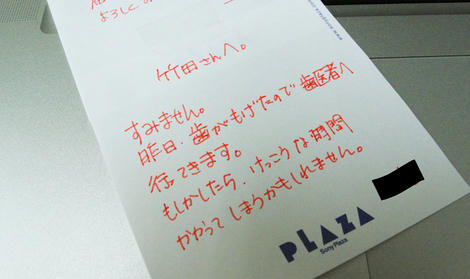 よろしく
竹田さんへ。
すみません。
昨日、歯がもげたので歯医者へ
行ってきます。
もしかしたら、けっこうな時間
かかってしまうかもしれません。
PLAZA
Sony Plaza